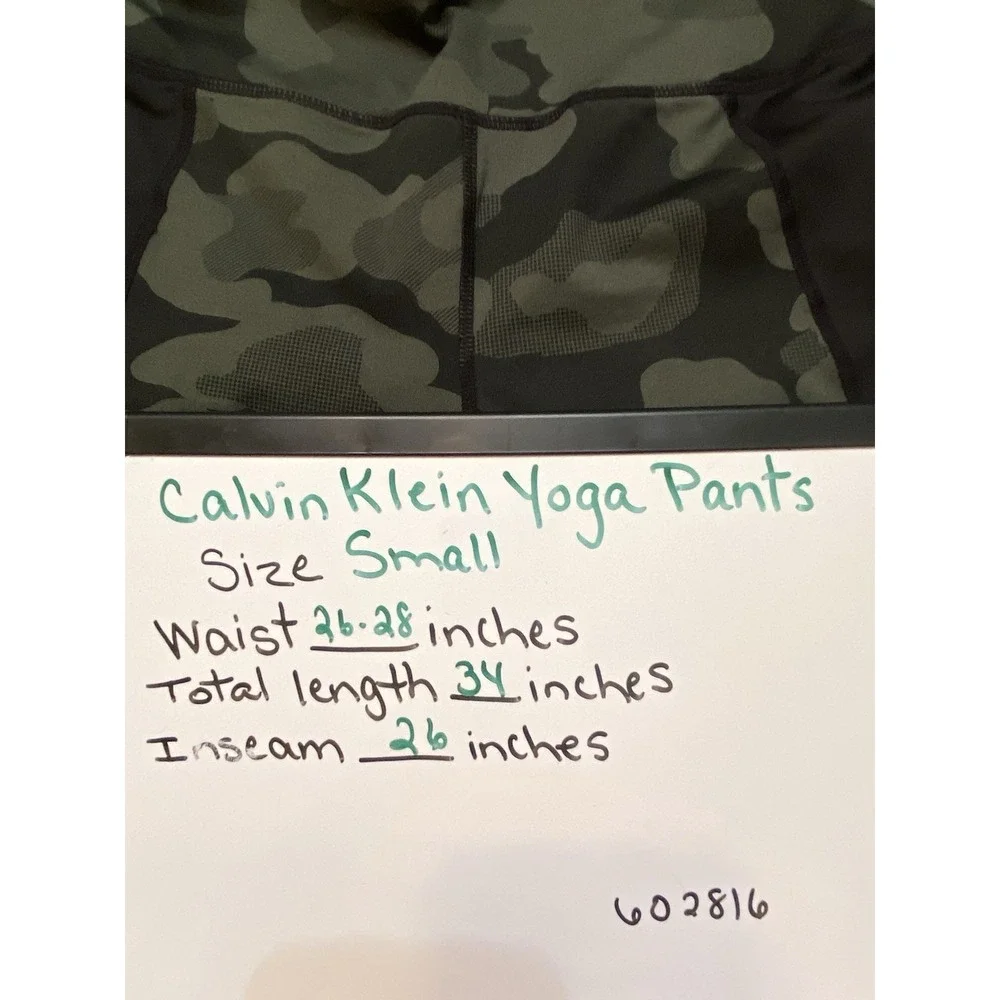 Calvin Klein Yoga Pants
Size Small
Waist 26-28 inches
Total length 34 inches
Inseam 26 inches
602816